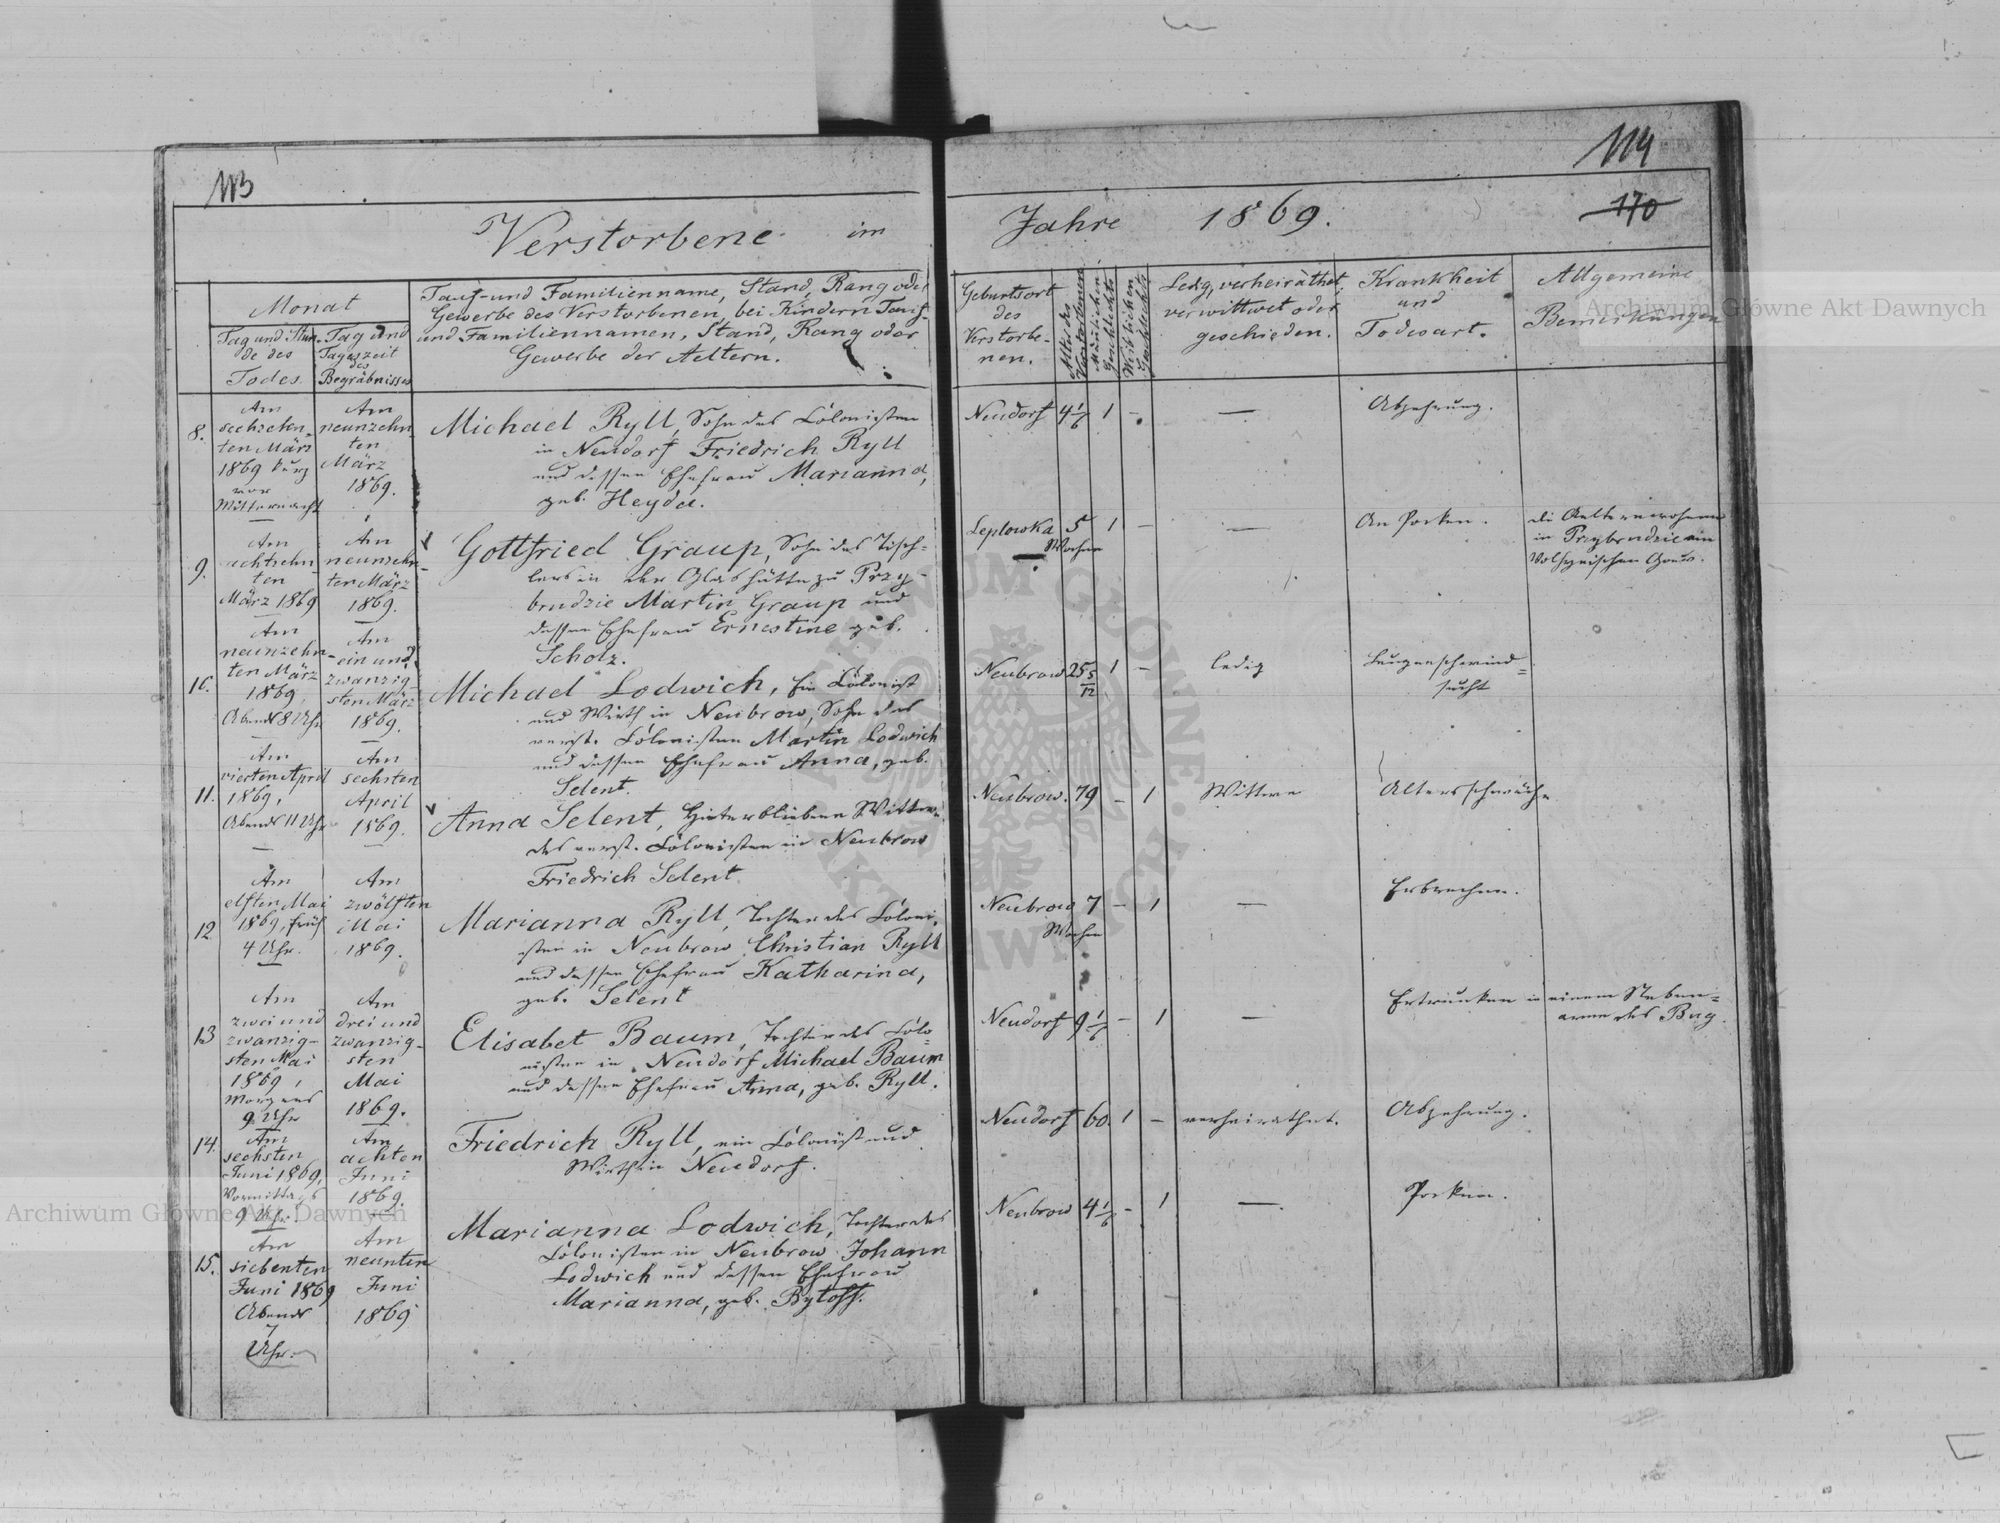 113
114
170
Verstorbene im Jahre 1869.
Monat
Tag und Stun-
de des
Todes.
Tag und
Tageszeit
des
Begräbnisses
Tauf- und Familienname, Stand, Rang oder
Gewerbe des Verstorbenen, bei Kindern Tauf-
und Familiennamen, Stand, Rang oder
Gewerbe der Aeltern.
Geburtsort
des
Verstorbe-
nen.
Alter des
Verstorbenen
Männlichen
Geschlechts
Weiblichen
Geschlechts
Ledig, verheirathet,
verwittwet oder
geschieden.
Krankheit
und
Todesart.
Allgemeine
Bemerkungen
8.
Am
sechzehn-
ten März
1869 kurz
vor
Mitternacht
Am
neunzehn-
ten
März
1869.
Michael Ryll, Sohn des Colonisten
in Neudorf Friedrich Ryll
und dessen Ehefrau Marianna,
geb. Heyda.
Neudorf 4 1/6 1 –
—
Abzehrung.
9.
Am
achtzehn-
ten
März 1869
Am
neunzehn-
ten März
1869.
Gottfried Graup, Sohn des Tisch-
lers in der Glashütte zu Przy-
brudzie Martin Graup und
dessen Ehefrau Ernestine geb.
Scholz.
Leplowka 5 1 –
Wochen
—
An Pocken.
die Aeltern wohnen
in Przybrudzie im
Volhynischen Gouv.
10.
Am
neunzehn-
ten März
1869,
Abends 8 Uhr
Am
ein und
zwanzig
sten März
1869.
Michael Lodwich, Ein Colonist
und Wirth in Neubrow, Sohn des
verst. Colonisten Martin Lodwich
und dessen Ehefrau Anna, geb.
Selent.
Neubrow 25 5/12 1 –
ledig
Lungenschwind=
sucht
11.
Am
vierten April
1869,
Abends 11 Uhr
Am
sechsten
April
1869.
Anna Selent, Hinterbliebene Wittwe
des verst. Colonisten in Neubrow
Friedrich Selent
Neubrow. 79 – 1
Wittwe
Altersschwäche
12
Am
elften Mai
1869, früh
4 Uhr.
Am
zwölften
Mai
1869.
Marianna Ryll, Tochter des Coloni-
sten in Neubrow Christian Ryll
und dessen Ehefrau Katharina,
geb. Selent
Neubrow 7 – 1
Wochen
—
Erbrechen.
13
Am
zwei und
zwanzig-
sten Mai
1869,
Morgens
9 Uhr
Am
drei und
zwanzig-
sten
Mai
1869.
Elisabet Baum, Tochter des Colo=
nisten in Neudorf Michael Baum
und dessen Ehefrau Anna, geb. Ryll.
Neudorf 9 1/6 – 1
—
Ertrunken in einem Neben=
arme des Bug.
14.
Am
sechsten
Juni 1869,
Vormittags
9 Uhr.
Am
achten
Juni
1869.
Friedrich Ryll, ein Colonist und
Wirth in Neudorf.
Neudorf 60. 1 –
verheirathet.
Abzehrung.
15.
Am
siebenten
Juni 1869
Abends
7
Uhr.
Am
neunten
Juni
1869
Marianna Lodwich, Tochter des
Colonisten in Neubrow Johann
Lodwich und dessen Ehefrau
Marianna, geb. Bytoff.
Neubrow 4 1/6 – 1
—
Pocken.
Archiwum Główne Akt Dawnych
Archiwum Główne Akt Dawnych